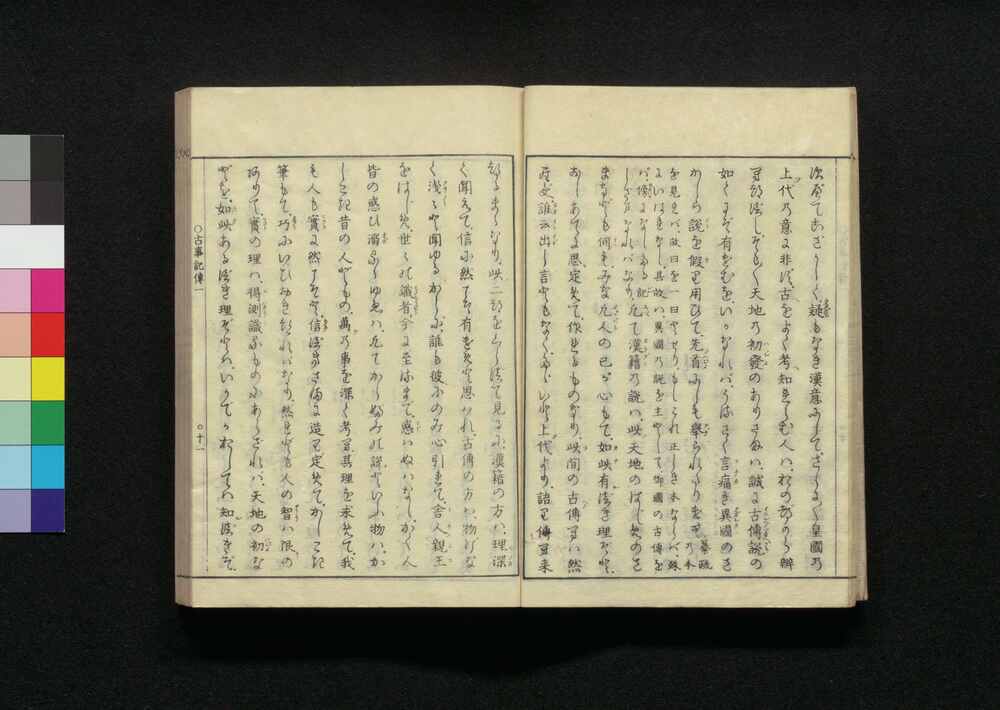 次第にこざかしく、疑もなき漢意にして、さらにさらに皇國の
上代の意に非ず、古をよく考知れらむ人は、おのづから辨
へぬべし、そもそも天地の初發のありさまは、誠に古傳説の
如くにぞ有けむを、いかなれば、うるさく言痛き異國のさ
かしら説を假り用ひて、先首にしも擧られたりけむ、纂疏の本
を見れば、故曰を一曰とせり、もしこれ正しき本ならば、殊
にいはれなし、其故は、異國の説を主として、御國の古傳を
傍になしたる記
しざまなればなり、凡て漢籍の説は、此天地のはじめのさ
まなども何も、みな凡人の己が心もて、如此有べき理ぞと、
おしあてに思定めて、作れるものなり、此間の古傳へは然
らず、誰云出し言ともなく、たゞいと上代より、語り傳へ來
つるまゝなり、此二つをくらべて見るに、漢籍の方は、理深
く聞えて、信に然こそ有けめと思はれ、古傳の方は、物げな
く淺々と聞ゆるからに、誰も彼にのみ心引れて、舍人親王
をはじめ、世々の識者、今に至るまで、惑はぬはなし、かく人
皆の惑ひ溺るゝゆゑは、凡てからぶみの説といふ物は、か
しこき昔の人どもの、萬の事を深く考へ、其理を求めて、我
も人も實に然こそと、信ずべきさまに造り定めて、かしこき
筆もて、巧にいひおきつればなり、然れども人の智は限の
有て、實の理は、得測識るものにあらざれば、天地の初な
どを、如此あるべき理ぞとは、いかでかおしては知べきぞ、
○古事記傳一
○十一